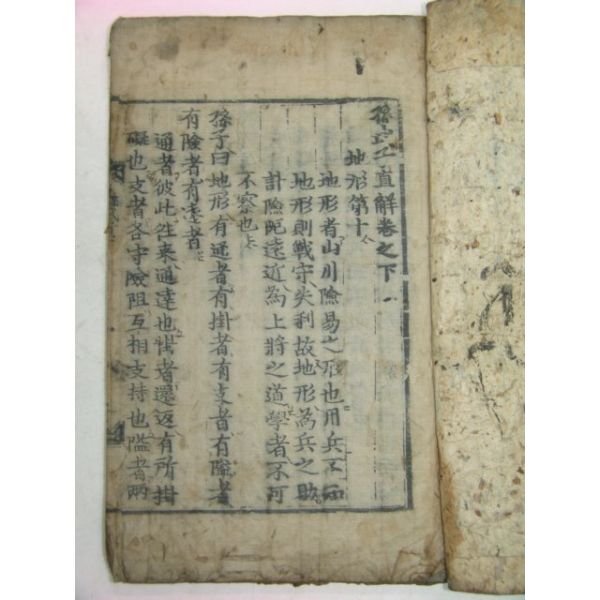 孫武子直解卷之下
地形第十
地形者山川險易之形也用兵不知
地形則戰守失利故地形為兵之助
計險阨遠近為上將之道學者不可
不察也
孫子曰地形有通者有掛者有支者有隘者
有險者有遠者
通者彼此往來通達也掛者還返有所掛
礙也支者各守險阻互相支持也隘者兩